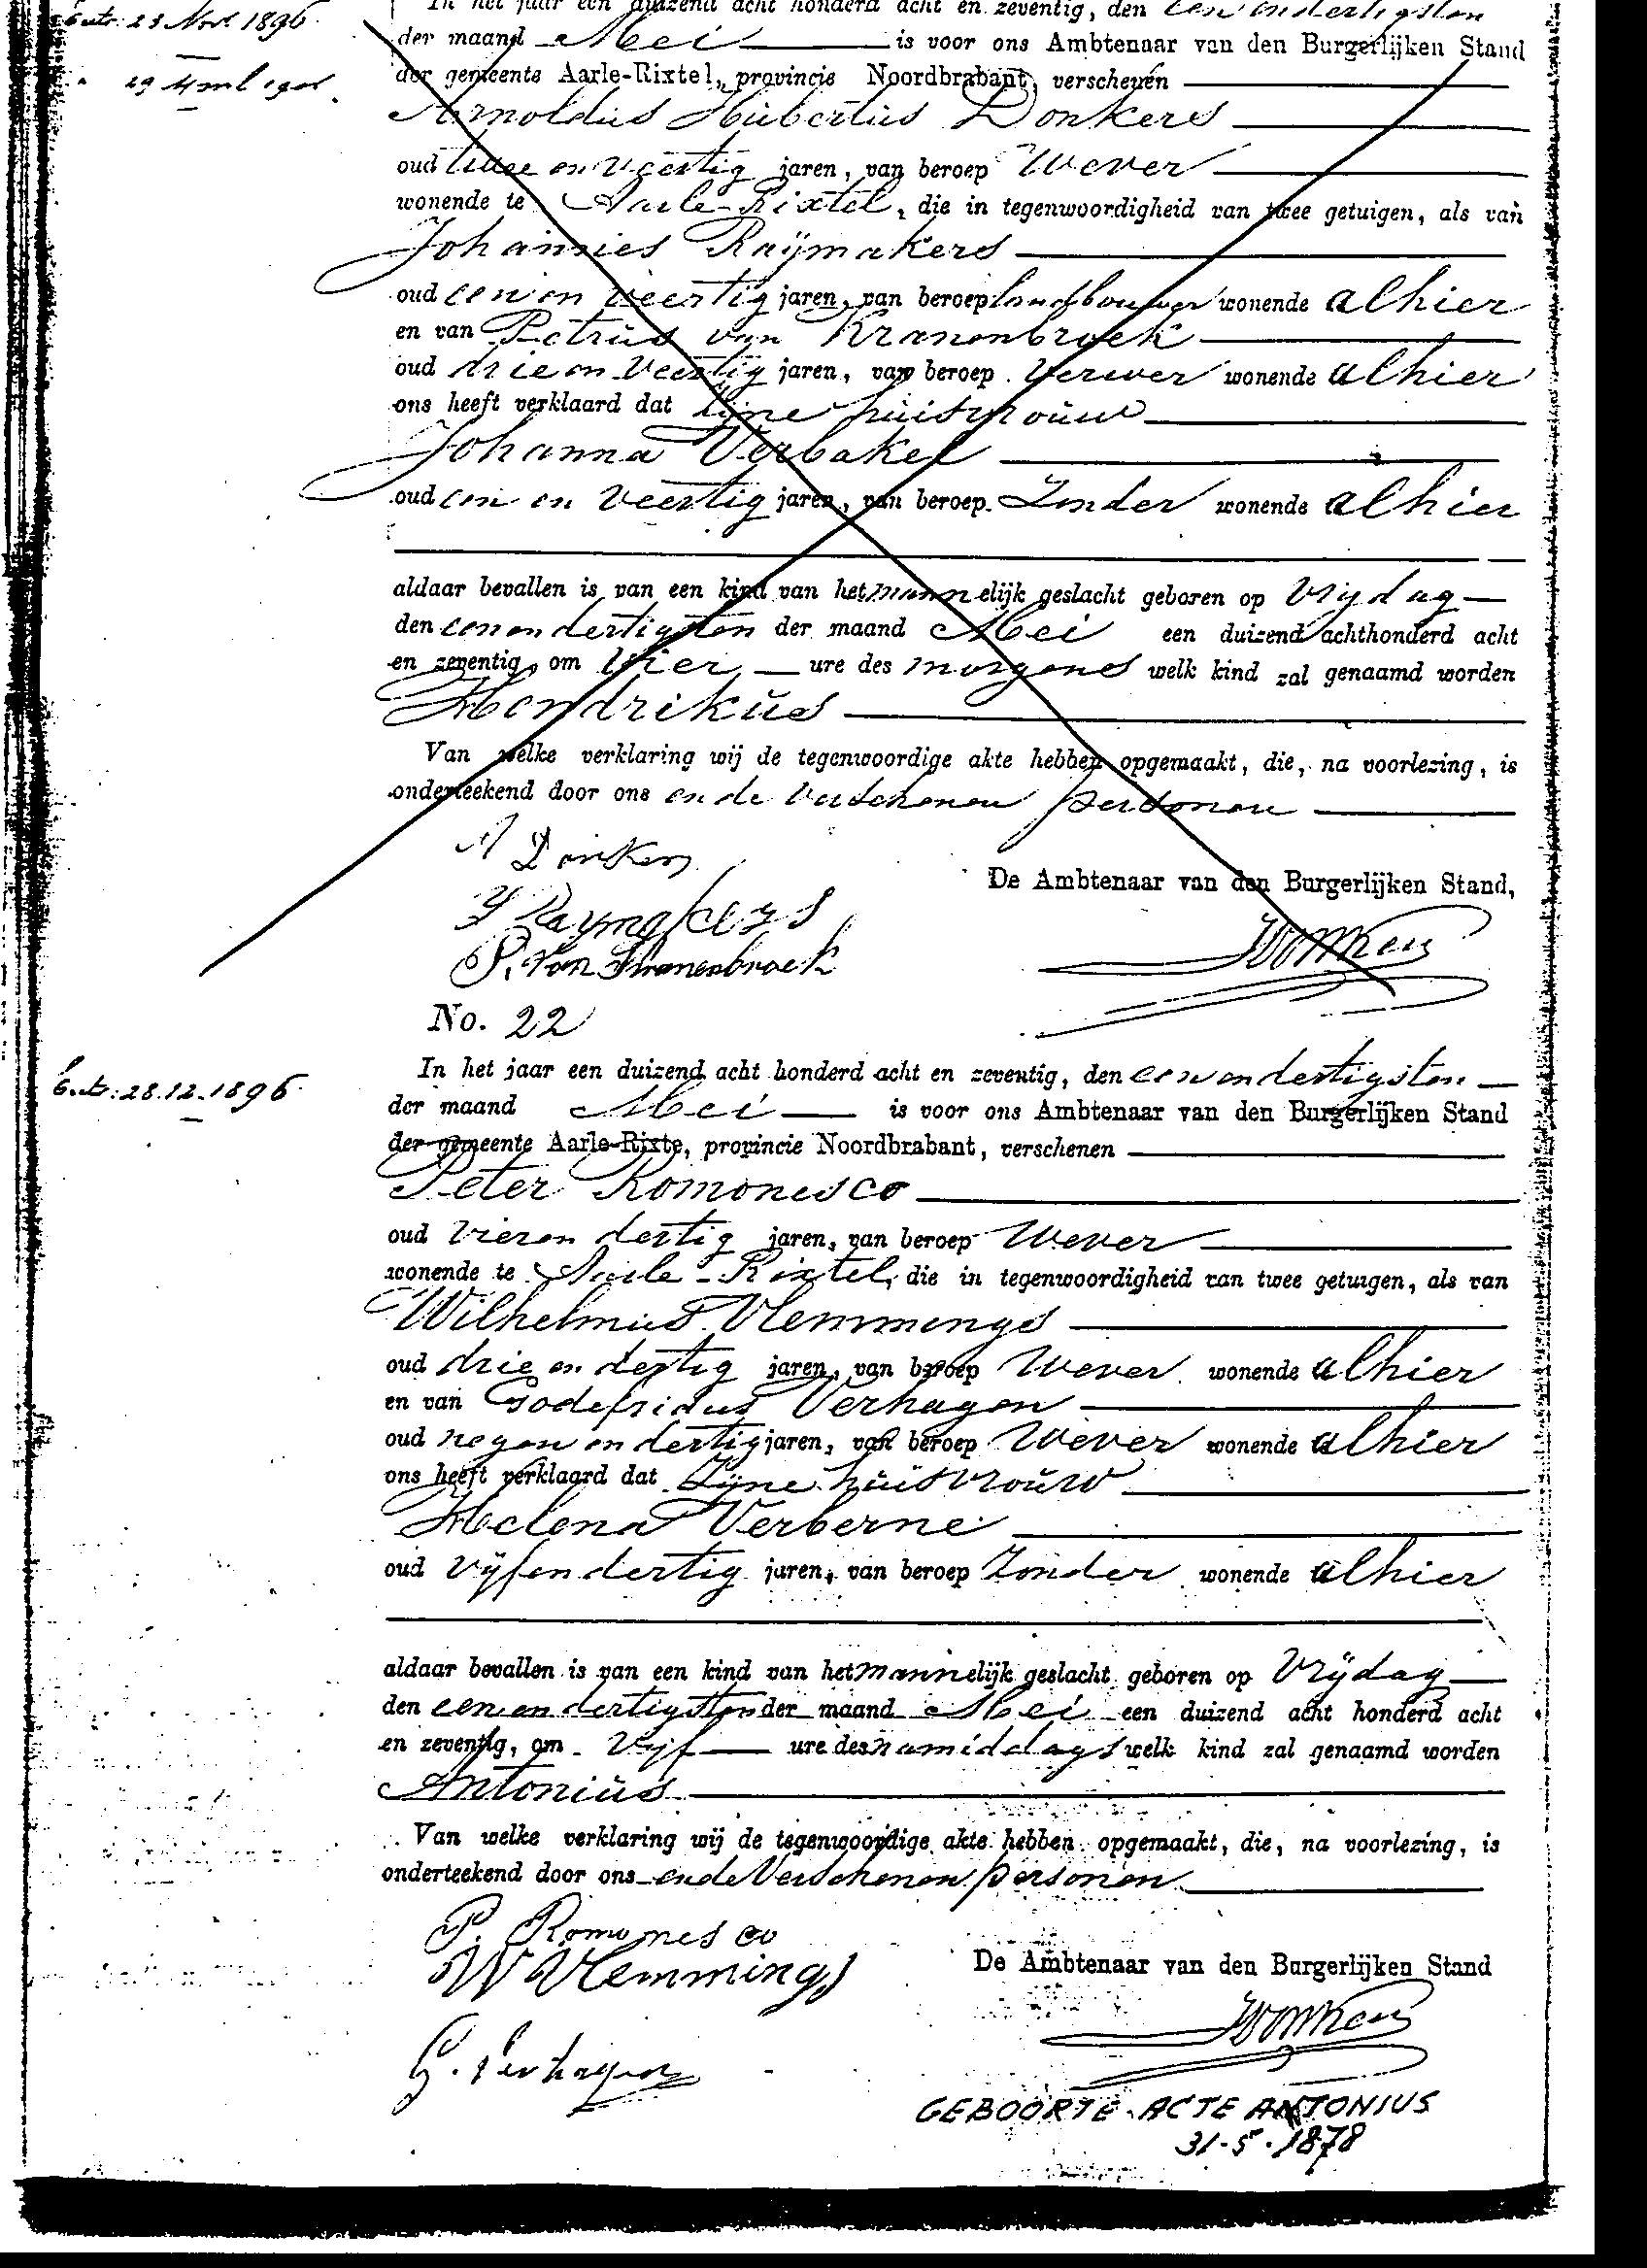 Extr. 23 Nov. 1896.
In het jaar een duizend acht honderd acht en zeventig, den een en dertigsten
der maand Mei is voor ons Ambtenaar van den Burgerlijken Stand
29 April
der gemeente Aarle-Rixtel, provincie Noordbrabant, verschenen
Arnoldus Hubertus Donkers
oud twee en veertig jaren, van beroep Wever
wonende te Aarle-Rixtel, die in tegenwoordigheid van twee getuigen, als van
Johannes Raÿmakers
oud een en veertig jaren, van beroep landbouwer wonende alhier
en van Petrus van Kranenbroek
oud drie en veertig jaren, van beroep Verwer wonende alhier
ons heeft verklaard dat Zijne huisvrouw
Johanna Verbakel
oud een en veertig jaren, van beroep Zonder wonende alhier
aldaar bevallen is van een kind van het mannelijk geslacht geboren op Vrijdag
den een en dertigsten der maand Mei een duizend achthonderd acht
en zeventig, om vier ure des morgens welk kind zal genaamd worden
Hendrikus
Van welke verklaring wij de tegenwoordige akte hebben opgemaakt, die, na voorlezing, is
onderteekend door ons en de verschenen personen
A Donkers
De Ambtenaar van den Burgerlijken Stand,
J Raymakers
P. van Kranenbroek
No. 22
In het jaar een duizend acht honderd acht en zeventig, den een en dertigsten
Extr. 28.12.1896.
der maand Mei is voor ons Ambtenaar van den Burgerlijken Stand
der gemeente Aarle-Rixte, provincie Noordbrabant, verschenen
Peter Romonesco
oud vier en dertig jaren, van beroep Wever
wonende te Aarle-Rixtel, die in tegenwoordigheid van twee getuigen, als van
Wilhelmus Vlemmings
oud drie en dertig jaren, van beroep Wever wonende alhier
en van Godefridus Verhagen
oud negen en dertig jaren, van beroep Wever wonende alhier
ons heeft verklaard dat Zijne huisvrouw
Helena Verberne
oud vijf en dertig jaren, van beroep Zonder wonende alhier
aldaar bevallen is van een kind van het mannelijk geslacht geboren op Vrijdag
den een en dertigsten der maand Mei een duizend acht honderd acht
en zeventig, om Vijf ure des namiddags welk kind zal genaamd worden
Antonius
Van welke verklaring wij de tegenwoordige akte hebben opgemaakt, die, na voorlezing, is
onderteekend door ons en de Verschenen personen
P. Romonesco
W Vlemmings
De Ambtenaar van den Burgerlijken Stand
G. Verhagen
GEBOORTE ACTE ANTONIUS
31-5-1878